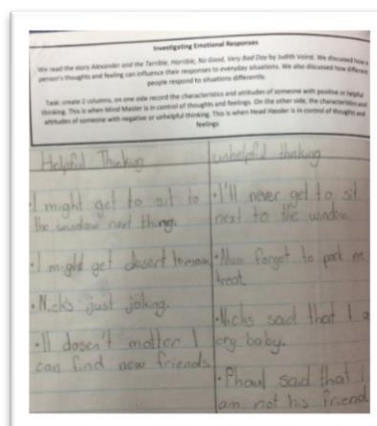 Investigating Emotional Responses
We read the story Alexander and the Terrible, Horrible, No Good, Very Bad Day by Judith Viorst. We discussed how a
person's thoughts and feeling can influence their responses to everyday situations. We also discussed how different
people respond to situations differently.
Task: create 2 columns, on one side record the characteristics and attitudes of someone with positive or helpful
thinking. This is when Mind Master is in control of thoughts and feelings. On the other side, the characteristics and
attitudes of someone with negative or unhelpful thinking. This is when Head Hassler is in control of thoughts and
feelings
Helpful Thinking
•I might get to sit to
the window next thing.
•I might get desert
•Nicks just joking.
•It dosen't matter I
can find new friends
unhelpful thinking
•I'll never get to sit
next to the window
•Mum forgot to pack me
treat
•Nicks said that I a
cry baby.
•Phaul said that I
am not his friend